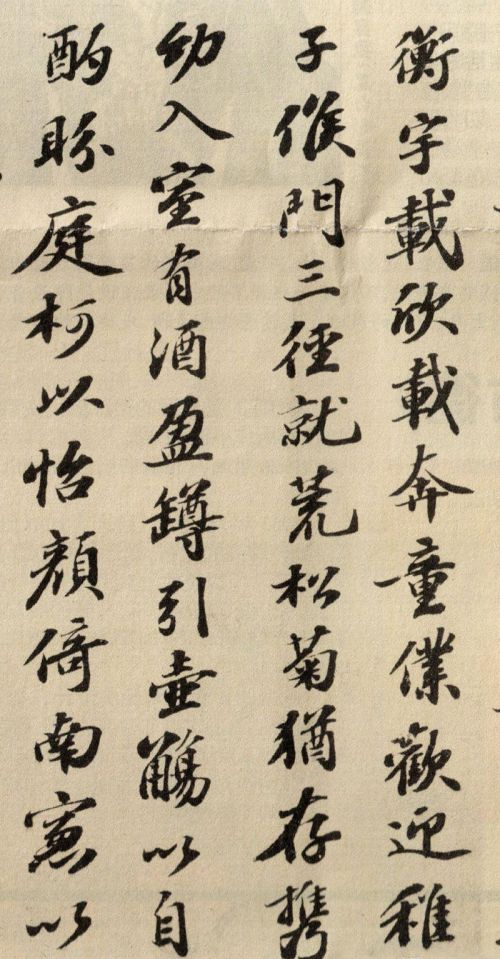 衡宇載欣載奔童僕歡迎稚
子候門三徑就荒松菊猶存携
幼入室有酒盈罇引壺觴以自
酌盼庭柯以怡顔倚南窻以